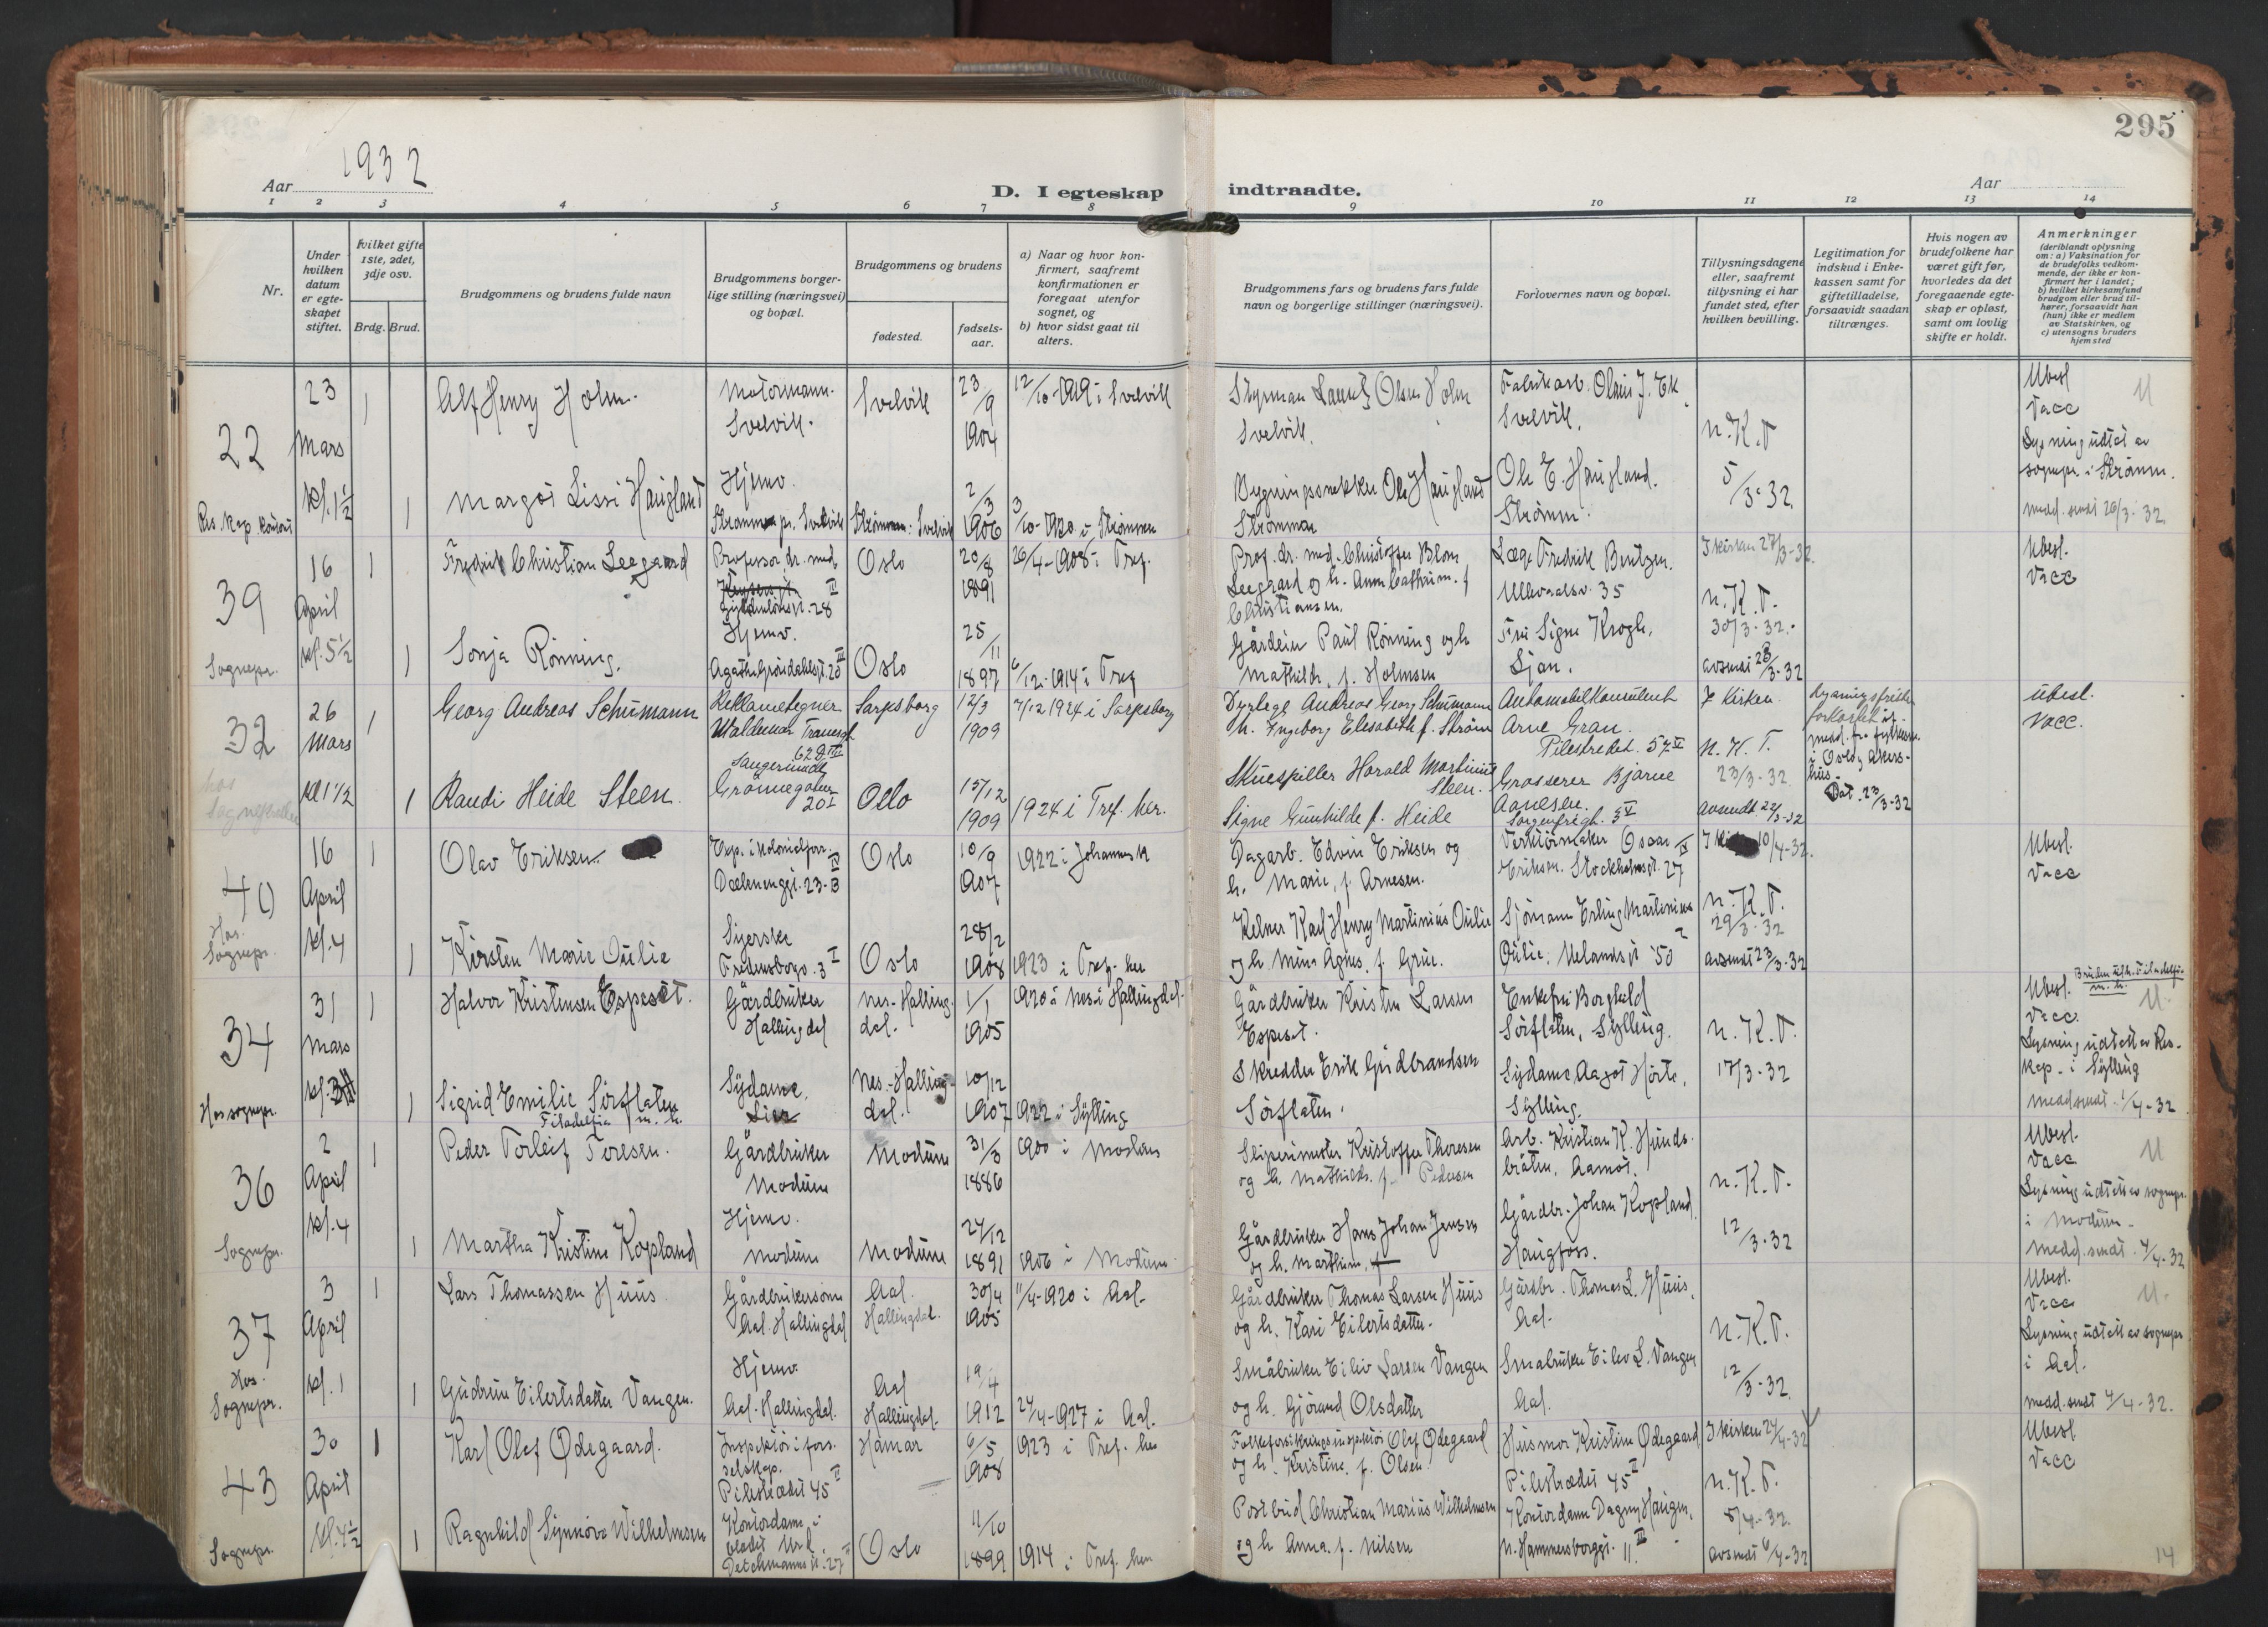 295
Aar 1932
D. I egteskap indtraadte.
Aar
1 2 3 4 5 6 7 8 9 10 11 12 13 14
Nr.
Under hvilken datum er egteskapet stiftet.
Hvilket gifte 1ste, 2det, 3dje osv.
Brdg. Brud.
Brudgommens og brudens fulde navn
Brudgommens borgerlige stilling (næringsvei) og bopæl.
Brudgommens og brudens
fødested.
fødselsaar.
a) Naar og hvor konfirmert, saafremt konfirmationen er foregaat utenfor sognet, og
b) hvor sidst gaat til alters.
Brudgommens fars og brudens fars fulde navn og borgerlige stillinger (næringsvei).
Forlovernes navn og bopæl.
Tillysningsdagene eller, saafremt tillysning ei har fundet sted, efter hvilken bevilling.
Legitimation for indskud i Enkekassen samt for giftetilladelse, forsaavidt saadan tiltrænges.
Hvis nogen av brudefolkene har været gift før, hvorledes da det foregaaende egteskap er opløst, samt om lovlig skifte er holdt.
Anmerkninger
(deriblandt oplysning om: a) Vaksination for de brudefolks vedkommende, der ikke er konfirmert her i landet; b) hvilket kirkesamfund brudgom eller brud tilhører, forsaavidt han (hun) ikke er medlem av Statskirken, og c) utensogns bruders hjemsted
22
23 Mars kl. 1½
Res. kap. kontor
1 Alf Henry Holm. Motormann. Svelvik. Svelvik 23/9 1904 12/10-1919 i Svelvik
Styrman Lauritz Olsen Holm Svelvik.
Fabrikarb. Olaus J. Ek Svelvik.
N.K.T. 5/3-32
Ubesl. Vacc U
Lysning udtat av sognepr. i Strömm.
medd. sendt 26/3-32.
1 Margot Lissi Haugland Hjemv. Strømmen pr. Svelvik Strømmen. Svelvik 2/3 1906 3/10-1920 i Strømmen
Bygningssnekker Ole Haugland Strømmen
Ole E. Haugland. Strømm.
39
16 April kl. 5½
Sognepr.
1 Fredrik Christian Leegaard Professor, dr. med. Gyldenløvesgt. 28 II Oslo 20/8 1891 26/4-1908 i Tref.
Prof. dr. med. Christoffer Blom Leegaard og h. Anna Cathrin. f. Christiansen.
Læge Fredrik Bentzen. Ullevaalsv. 35
I kirken 27/3-32.
N.K.T. 30/3-32.
avsendt 23/3-32
Ubesl. Vacc
1 Sonja Rønning. Hjemv. Agathe Grøndahlsgt. 20 III Oslo 25/11 1897 6/12-1914 i Tref
Gårdeier Paul Rønning og h. Mathilde, f. Holmsen
Fru Signe Krogh, Ljan.
32
26 Mars kl 1½
hos Sognepresten
1 Georg Andreas Schumann Reklametegner Waldemar Thranesgt 62 Sarpsborg 12/3 1909 7/12 1924 i Sarpsborg
Dyrlege Andreas Georg Schumann h. Ingeborg Elisabeth f. Strøm
Automobilkonsulent Arne Gran. Pilestredet. 57 II
I Kirken
N.K.T. 23/3-32.
avsendt 22/3-32
Lysningsfristen forkortet medd. fra fylkesm. i Oslo, Akershus. Dat. 23/3-32
ubesl. Vacc.
1 Randi Heide Steen. Sangerinde Grønnegaten 20 I Oslo 15/12 1909 1924 i Tref. her.
Skuespiller Harald Martinius Steen. Signe Gunhilde f. Heide
Grosserer Bjarne Aanesen. Sorgenfrigt. 5 V
40
16 April kl. 4
Hos. Sognepr.
1 Olav Eriksen Exp. i kolonialforr. Dælenenggt. 23-B Oslo 10/9 1907 1922 i Johannes K
Dagarb. Edvin Eriksen og h. Marie, f. Arnesen.
Verktøimaker Oscar Eriksen. Stockholmsgt. 27 IV
I 10/4-32.
N.K.T. 29/3-32
avsendt 23/3-32
Ubesl. Vacc
1 Kirsten Marie Oulie Syerske Fredensborgv. 3 I Oslo 28/2 1908 1923 i Tref. her
Kelner Karl Henry Martinius Oulie og h. Mina Agnes, f. Grue.
Sjømann Erling Martinius Oulie. Uelandsgt 50
34
31 Mars kl. 3
Hos sognepr.
1 Halvor Kristensen Espeset. Gårdbruker Hallingdal Nes-Hallingdal. 1/1 1905 1920 i Nes i Hallingdal.
Gårdbruker Kristen Larsen Espeset.
Enkefru Borghild Sörflaten, Sylling.
N.K.T. 17/3-32
Ubesl. Bruden tilh. Filadelfia m. h. U
Vacc.
Lysning udtatt av Res. kap. i Sylling
Medd sendt 1/4-32
1 Sigrid Emilie Sörflaten Filadelfia m. h. Sydame. Lier Nes-Hallingdal. 10/12 1907 1922 i Sylling
Skredder Erik Gudbrandsen Sørflaten.
Sydame Aagot Hörte, Sylling.
36
2 April kl. 4
Sognepr.
1 Peder Torleif Toresen. Gårdbruker Modum Modum 31/3 1886 1900 i Modum
Sliperimester Kristoffer Thoresen og h. Mathilde. f. Pedersen
Arb. Kristian K. Hundsbråten, Aamot.
N.K.T. 12/3-32
Ubesl. Vacc U
Lysning udtatt av sognepr. i Modum.
Medd. sendt. 4/4-32
1 Martha Kristine Kopland Hjemv. Modum Modum 24/12 1891 1906 i Modum
Gårdbruker Hans Johan Jensen og h. Marthine, f
Gårdbr. Johan Kopland. Haugfoss.
37
3 April kl. 1
Hos. Sognepr.
1 Lars Thomassen Huus Gårdbrukersønn Aal. Hallingdal Aal. Hallingdal. 30/4 1905 11/4-1920 i Aal.
Gårdbruker Thomas Larsen Huus og h. Kari Eilertsdatter.
Gårdbr. Thomas L. Huus, Aal.
N.K.T. 12/3-32.
Ubesl. Vacc U.
Lysning udtatt av sognepr. i Aal.
medd. sendt 4/4-32.
1 Gudrun Eilertsdatter Vangen. Hjemv. Aal. Hallingdal. Aal Hallingdal. 19/4 1912 24/4-1927 i Aal.
Småbruker Eiliv Larsen Vangen og h. Gjørand Olsdatter
Smabruker Eilev L. Vangen Aal.
43
30 April kl. 4½
Sognepr.
1 Karl Olaf Ødegaard. Inspektør i forselskap. Pilestrædet 45 II Hamar 6/5 1908 1923 i Tref. her
Folkeforsikringsinspektør Olef Ødegaard og h. Kristine. f. Olsen
Husmor Kristine Ødegaard, Pilestrædet 45 II
I kirken 24/4-32
N.K.T. 8/4-32.
avsendt 6/4-32
Ubesl Vacc
1 Ragnhild Synnøve Wilhelmsen Kontordame i bladet Urd. Deichmannsgt. 27 II Oslo 11/10 1899 1914 i Tref. her
Postbud Christian Marius Wilhelmsen og h Anna. f. Nilsen
Kontordame Dagny Haugen, N. Hammersborggt. 11. III
14